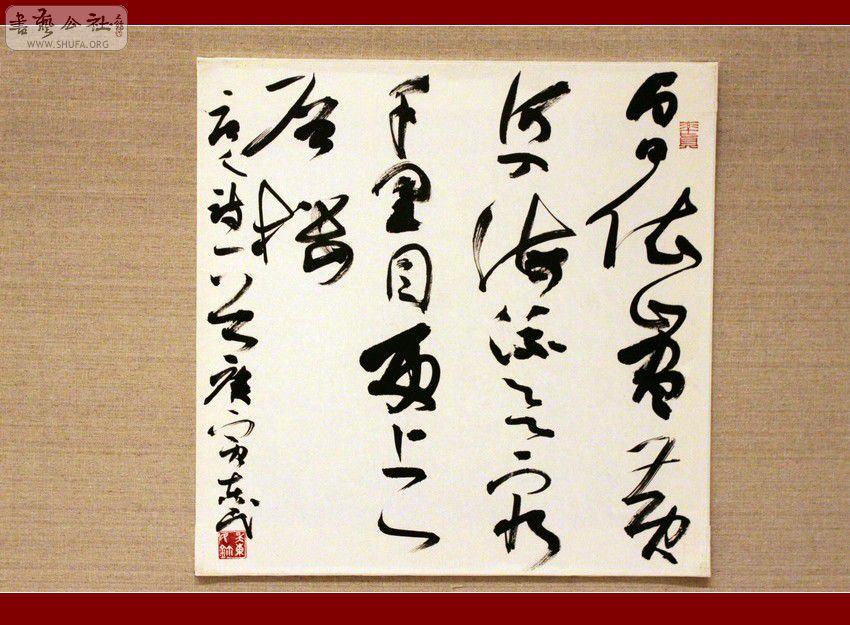 書藝公社
WWW.SHUFA.ORG
白日依山盡黄
河入海流欲窮
千里目更上一
層樓
唐人詩一首庚寅東民
率真